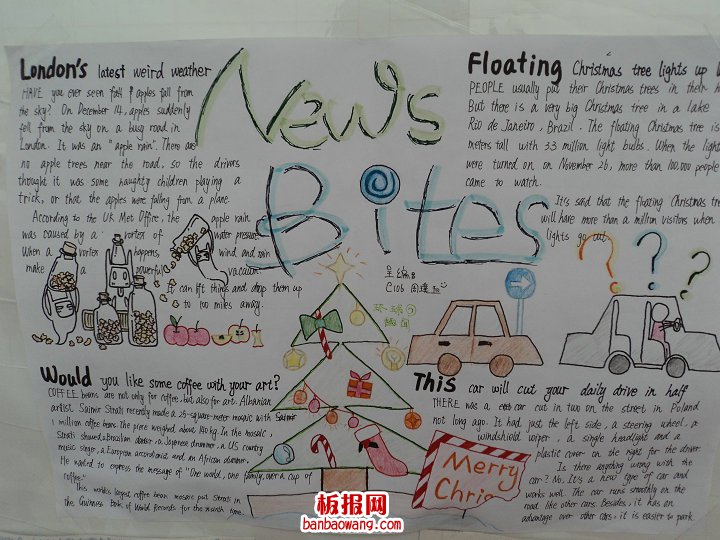 London's latest weird weather
HAVE you ever seen fall apples fall from
the sky? On December 14, apples suddenly
fell from the sky on a busy road in
London. It was an "apple rain". There are
no apple trees near the road, so the drivers
thought it was some naughty children playing a
trick, or that the apples were falling from a plane.
According to the UK Met Office, the apple rain
was caused by a vortex of water pressure.
When a vortex happens, wind and rain
make a powerful vacuum.
It can lift things and drop them up
to 100 miles away.
News
Bites
Floating Christmas tree lights up
PEOPLE usually put their Christmas trees in their
But there is a very big Christmas tree in a lake
Rio de Janeiro, Brazil. The floating Christmas tree is
meters tall with 3.3 million light bulbs. When the light
were turned on on November 26, more than 100,000 people
came to watch.
It's said that the floating Christmas tree
will have more than a million visitors when
lights go out.
? ? ?
C106
环球
趣闻
Would you like some coffee with your art?
COFFEE beans are not only for coffee, but also for art. Albanian
artist, Saimir Strati recently made a 25-square-meter mosaic with
1 million coffee beans. The piece weighed about 140 kg. In the mosaic,
Strati showed a Brazilian dancer, a Japanese drummer, a US country
music singer, a European accordionist and an African drummer.
He wanted to express the message of "One world, one family, over a cup of
coffee."
This world's largest coffee bean mosaic put Strati in
the Guinness Book of World Records for the month time.
This car will cut your daily drive in half
THERE was a car cut in two on the street in Poland
not long ago. It had just the left side, a steering wheel, a
windshield wiper, a single headlight and a
plastic cover on the right for the driver.
Is there anything wrong with the
car? No. It's a new type of car and
works well. The car runs smoothly on the
road like other cars. Besides, it has an
advantage over other cars: it is easier to park.
Merry
Chris
板报网
banbaowang.com